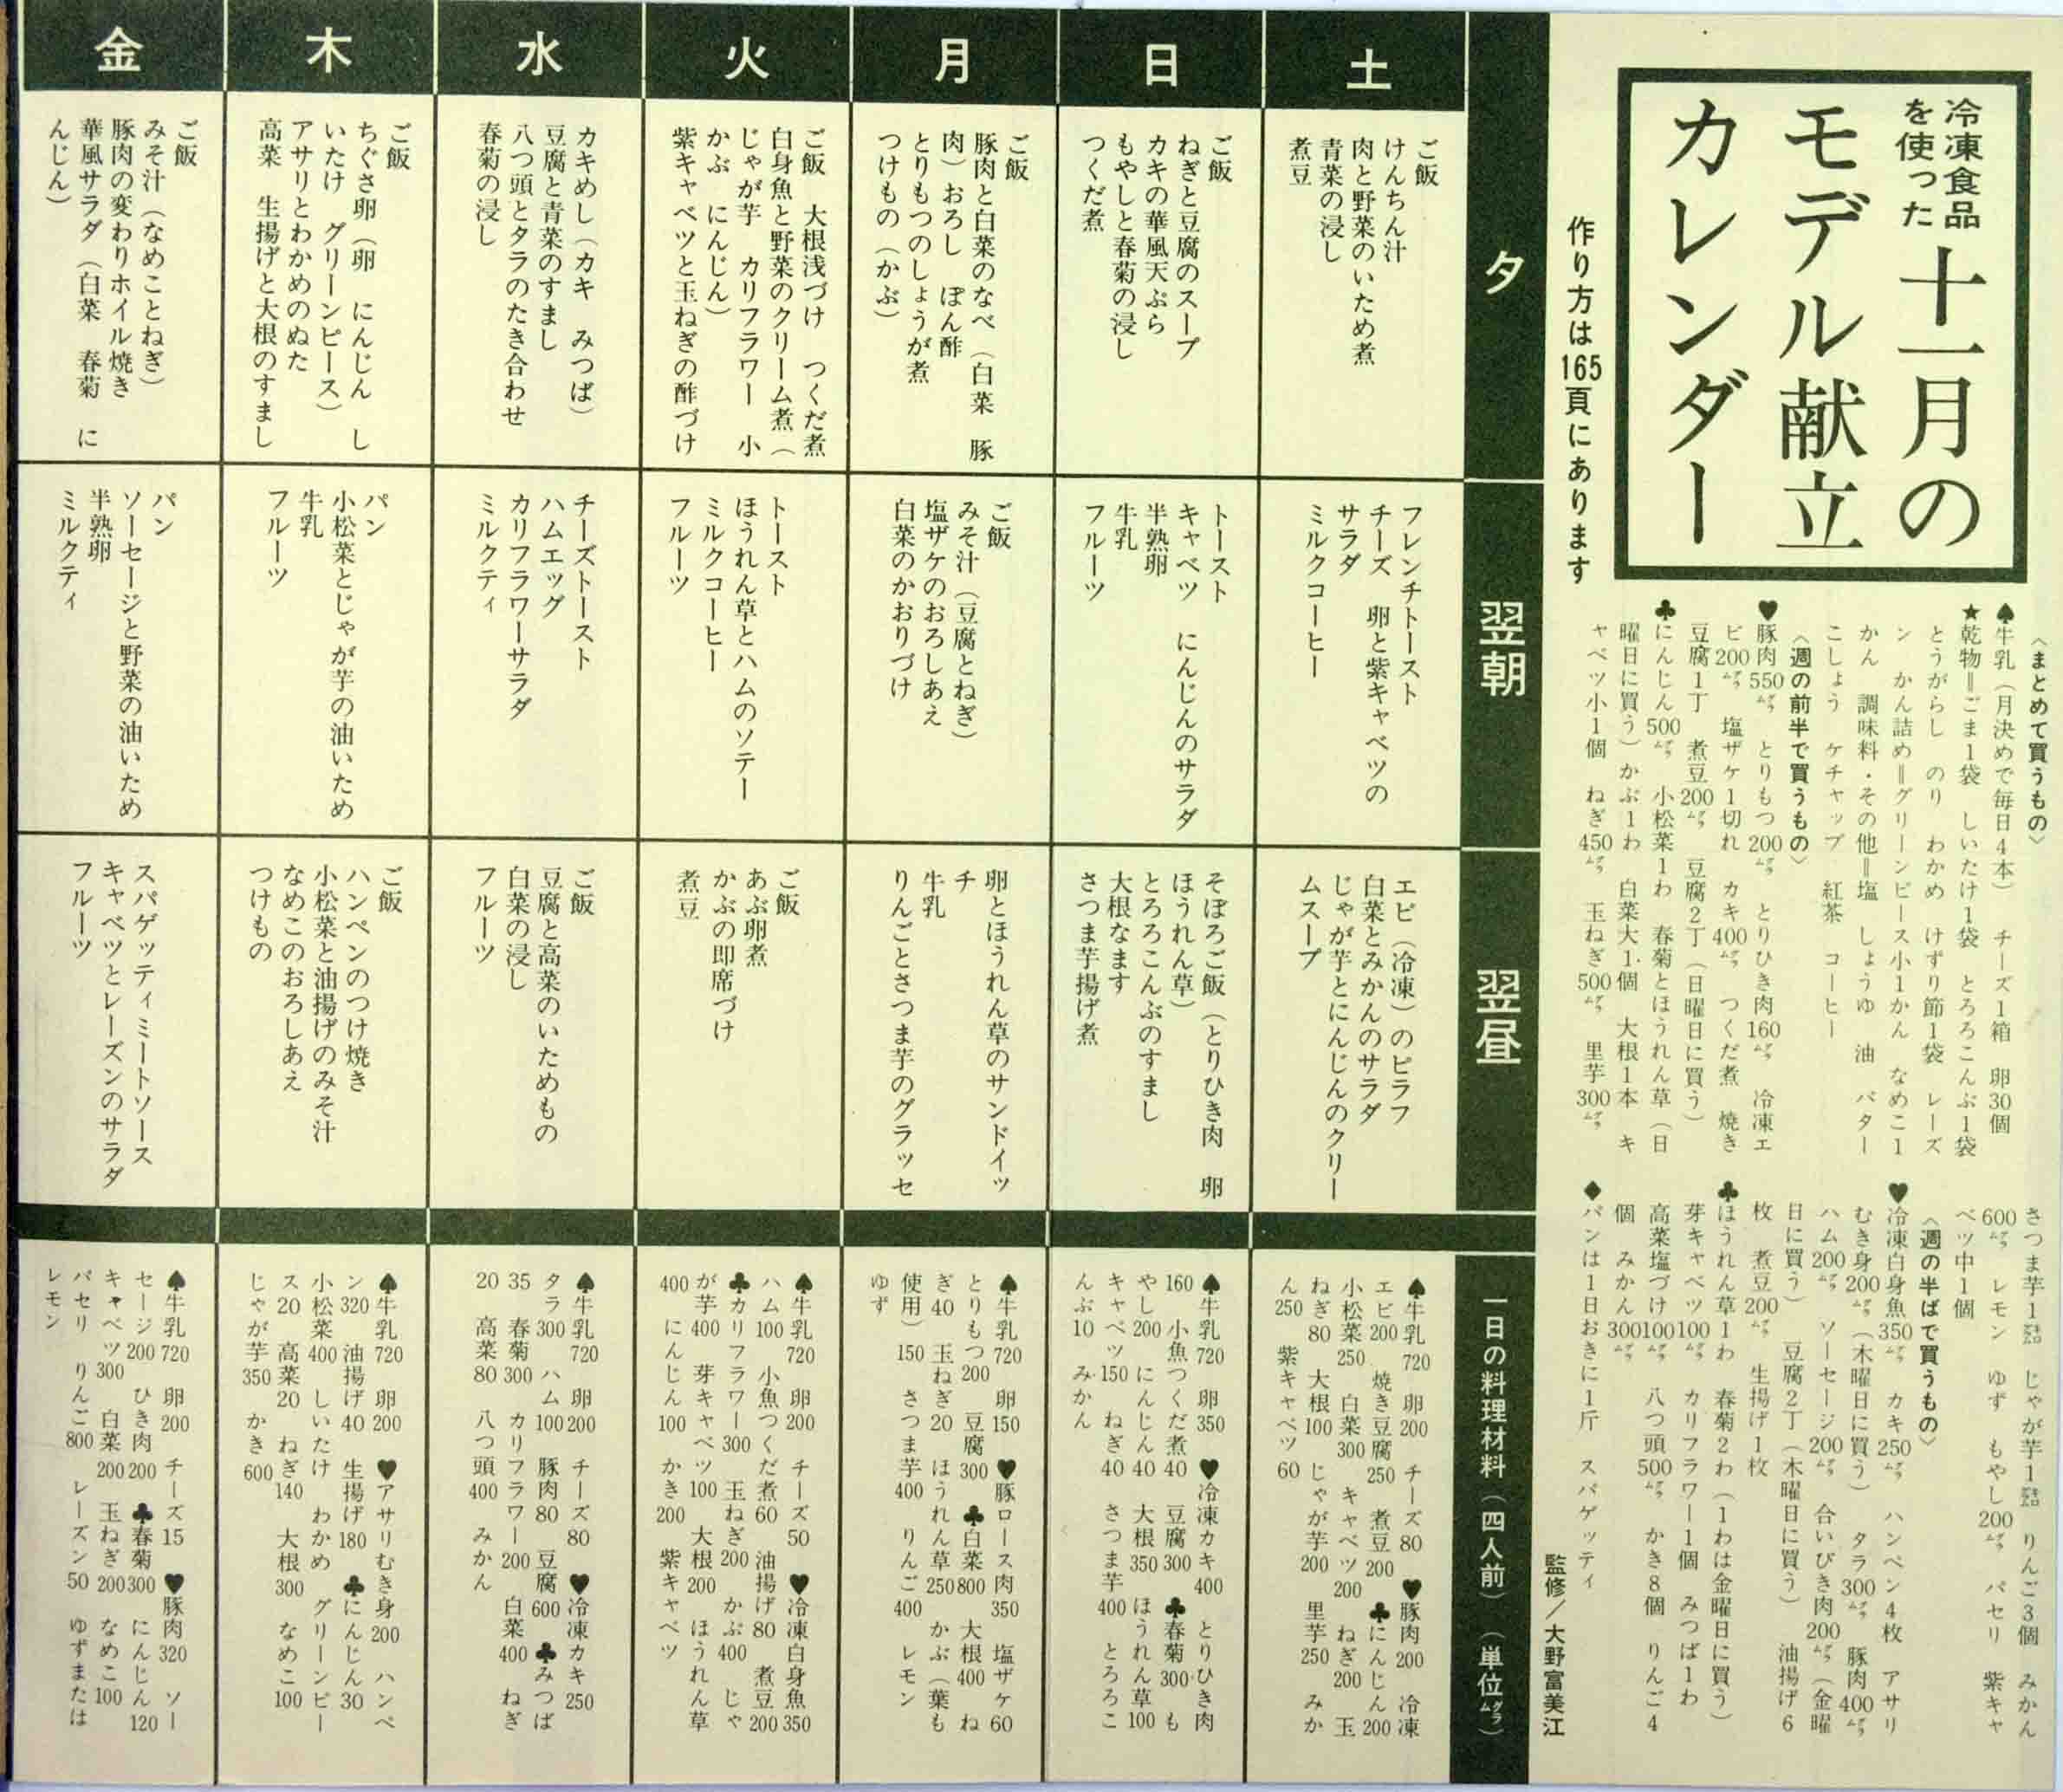 冷凍食品
を使った
十一月の
モデル献立
カレンダー
作り方は165頁にあります
〈まとめて買うもの〉
♠牛乳（月決めで毎日4本）　チーズ1箱　卵30個
★乾物＝ごま1袋　しいたけ1袋　とろろこんぶ1袋
とうがらし　のり　わかめ　けずり節1袋　レーズ
ン　かん詰め＝グリーンピース小1かん　なめこ1
かん　調味料・その他＝塩　しょうゆ　油　バター
こしょう　ケチャップ　紅茶　コーヒー
〈週の前半で買うもの〉
♥豚肉550㌘　とりもつ200㌘　とりひき肉160㌘　冷凍エ
ビ200㌘　塩ザケ1切れ　カキ400㌘　つくだ煮　焼き
豆腐1丁　煮豆200㌘　豆腐2丁（日曜日に買う）
♣にんじん500㌘　小松菜1わ　春菊とほうれん草（日
曜日に買う）かぶ1わ　白菜大1個　大根1本　キ
ャベツ小1個　ねぎ450㌘　玉ねぎ500㌘　里芋300㌘
さつま芋1㌔　じゃが芋1㌔　りんご3個　みかん
600㌘　レモン　ゆず　もやし200㌘　パセリ　紫キャ
ベツ中1個
〈週の半ばで買うもの〉
♥冷凍白身魚350㌘　カキ250㌘　ハンペン4枚　アサリ
むき身200㌘（木曜日に買う）　タラ300㌘　豚肉400㌘
ハム200㌘　ソーセージ200㌘　合いびき肉200㌘（金曜
日に買う）　豆腐2丁（木曜日に買う）　油揚げ6
枚　煮豆200㌘　生揚げ1枚
♣ほうれん草1わ　春菊2わ（1わは金曜日に買う）
芽キャベツ100㌘　カリフラワー1個　みつば1わ
高菜塩づけ100㌘　八つ頭500㌘　かき8個　りんご4
個　みかん300㌘
♦パンは1日おきに1斤　スパゲッティ
監修／大野富美江
夕
翌朝
翌昼
一日の料理材料（四人前）（単位㌘）
土
ご飯
けんちん汁
肉と野菜のいため煮
青菜の浸し
煮豆
フレンチトースト
チーズ　卵と紫キャベツの
サラダ
ミルクコーヒー
エビ（冷凍）のピラフ
白菜とみかんのサラダ
じゃが芋とにんじんのクリー
ムスープ
♠牛乳720　卵200　チーズ80　♥豚肉200　冷凍
エビ200　焼き豆腐250　煮豆200　♣にんじん200
小松菜250　白菜300　キャベツ200　ねぎ200　玉
ねぎ80　大根100　じゃが芋200　里芋250　みか
ん250　紫キャベツ60
日
ご飯
ねぎと豆腐のスープ
カキの華風天ぷら
もやしと春菊の浸し
つくだ煮
トースト
キャベツ　にんじんのサラダ
半熟卵
牛乳
フルーツ
そぼろご飯（とりひき肉　卵
ほうれん草）
とろろこんぶのすまし
大根なます
さつま芋揚げ煮
♠牛乳720　卵350　♥冷凍カキ400　とりひき肉
160　小魚つくだ煮40　豆腐300　♣春菊300　も
やし200　にんじん40　大根350　ほうれん草100
キャベツ150　ねぎ40　さつま芋400　とろろこ
んぶ10　みかん
月
ご飯
豚肉と白菜のなべ（白菜　豚
肉）おろし　ぽん酢
とりもつのしょうが煮
つけもの（かぶ）
ご飯
みそ汁（豆腐とねぎ）
塩ザケのおろしあえ
白菜のかおりづけ
卵とほうれん草のサンドイッ
チ
牛乳
りんごとさつま芋のグラッセ
♠牛乳720　卵150　♥豚ロース肉350　塩ザケ60
とりもつ200　豆腐300　♣白菜800　大根400　ね
ぎ40　玉ねぎ20　ほうれん草250　かぶ（葉も
使用）150　さつま芋400　りんご400　レモン
ゆず
火
ご飯　大根浅づけ　つくだ煮
白身魚と野菜のクリーム煮（
じゃが芋　カリフラワー　小
かぶ　にんじん）
紫キャベツと玉ねぎの酢づけ
トースト
ほうれん草とハムのソテー
ミルクコーヒー
フルーツ
ご飯
あぶ卵煮
かぶの即席づけ
煮豆
♠牛乳720　卵200　チーズ50　♥冷凍白身魚350
ハム100　小魚つくだ煮60　油揚げ80　煮豆200
♣カリフラワー300　玉ねぎ200　かぶ400　じゃ
が芋400　芽キャベツ100　大根200　ほうれん草
400　にんじん100　かき200　紫キャベツ
水
カキめし（カキ　みつば）
豆腐と青菜のすまし
八つ頭とタラのたき合わせ
春菊の浸し
チーズトースト
ハムエッグ
カリフラワーサラダ
ミルクティ
ご飯
豆腐と高菜のいためもの
白菜の浸し
フルーツ
♠牛乳720　卵200　チーズ80　♥冷凍カキ250
タラ300　ハム100　豚肉80　豆腐600　♣みつば
35　春菊300　カリフラワー200　白菜400　ねぎ
20　高菜80　八つ頭400　みかん
木
ご飯
ちぐさ卵（卵　にんじん　し
いたけ　グリーンピース）
アサリとわかめのぬた
高菜　生揚げと大根のすまし
パン
小松菜とじゃが芋の油いため
牛乳
フルーツ
ご飯
ハンペンのつけ焼き
小松菜と油揚げのみそ汁
なめこのおろしあえ
つけもの
♠牛乳720　卵200　♥アサリむき身200　ハンペ
ン320　油揚げ40　生揚げ180　♣にんじん30
小松菜400　しいたけ　わかめ　グリーンピー
ス20　高菜20　ねぎ140　大根300　なめこ100
じゃが芋350　かき600
金
ご飯
みそ汁（なめことねぎ）
豚肉の変わりホイル焼き
華風サラダ（白菜　春菊　に
んじん）
パン
ソーセージと野菜の油いため
半熟卵
ミルクティ
スパゲッティミートソース
キャベツとレーズンのサラダ
フルーツ
♠牛乳720　卵200　チーズ15　♥豚肉320　ソー
セージ200　ひき肉200　♣春菊300　にんじん120
キャベツ300　白菜200　玉ねぎ200　なめこ100
パセリ　りんご800　レーズン50　ゆずまたは
レモン